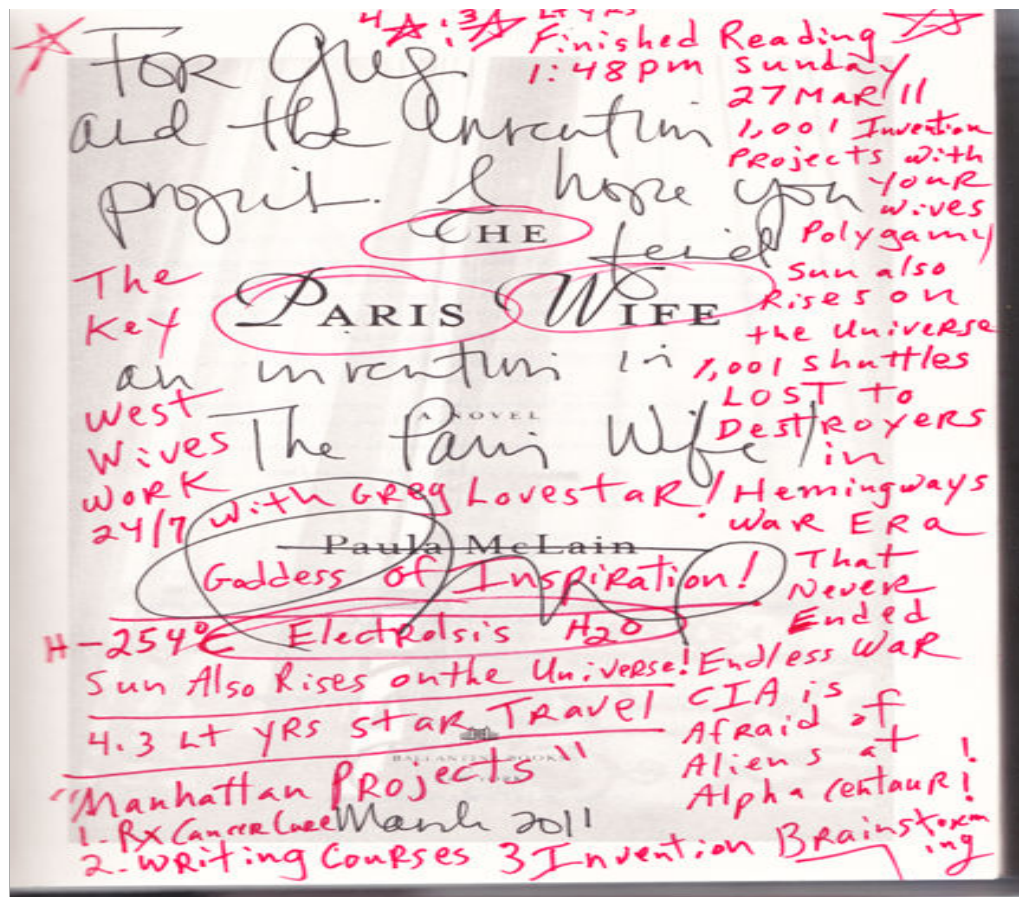 4 ☆ .3 ☆ Lt yrs
Finished Reading
1:48pm Sunday
27 MAR 11
1,001 Invention
Projects with
your
wives
Polygamy
Sun also
Rises on
the Universe
1,001 Shuttles
LOST to
Destroyers
in
Hemingways
War ERA
That
Never
Ended
Endless War
CIA is
Afraid of
Aliens at
Alpha Centauri!
For Greg
and the Invention
project. I hope you
find
THE
PARIS WIFE
an invention in
A NOVEL
The Paris Wife!
Paula McLain
The
Key
West
Wives
Work
24/7 with Greg Lovestar!
Goddess of Inspiration!
H -254°C Electrolsis H2O
Sun Also Rises on the Universe!
4.3 Lt yrs Star Travel
BALLANTINE BOOKS
"Manhattan Projects"
March 2011
1. Rx Cancer Cure
2. Writing Courses 3 Invention Brainstorm
ing